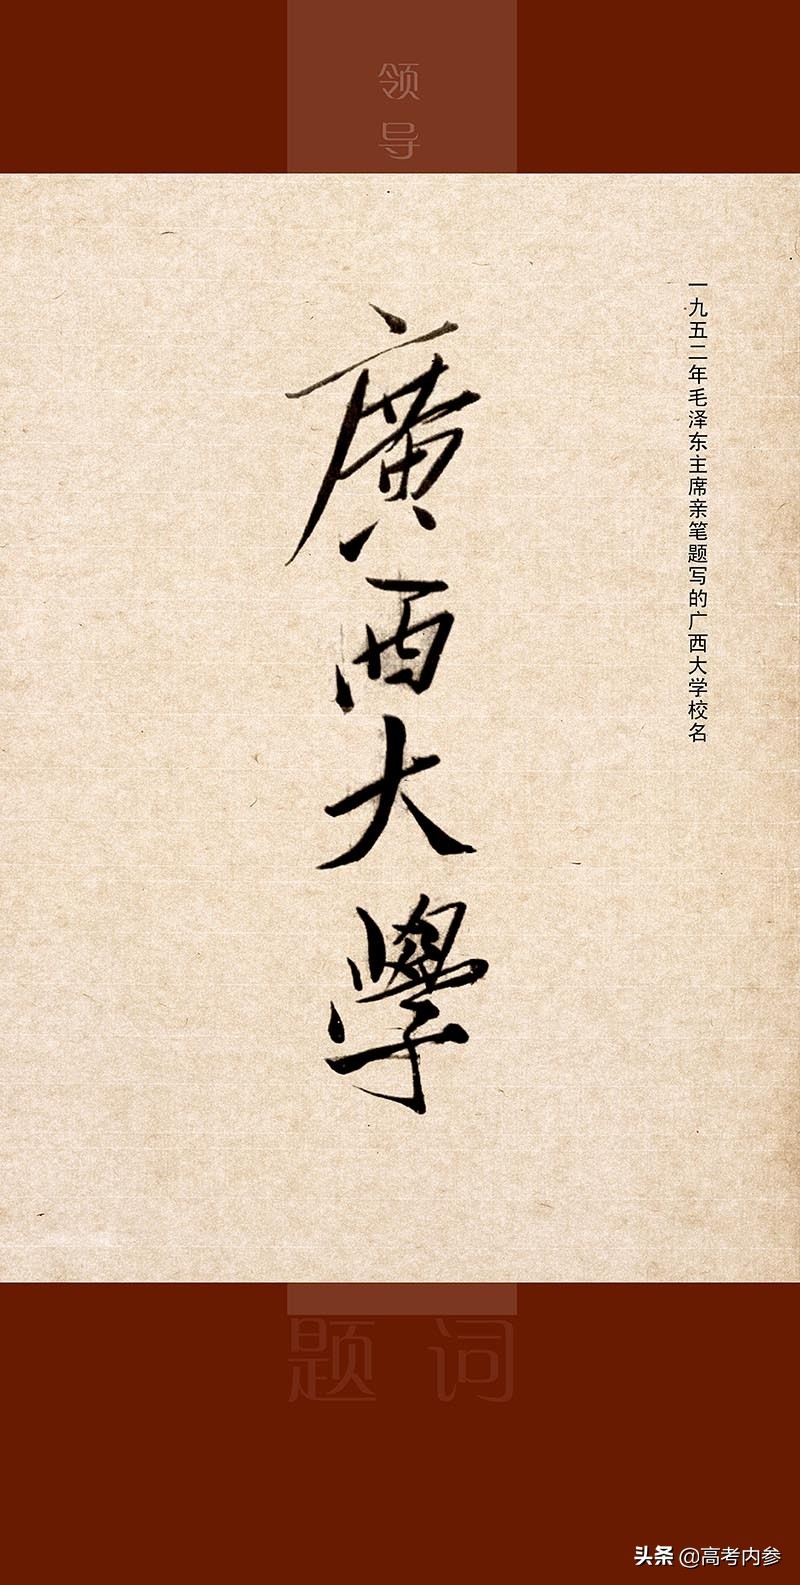 领导
一九五二年毛泽东主席亲笔题写的广西大学校名
廣西大學
题词
头条 @高考内参